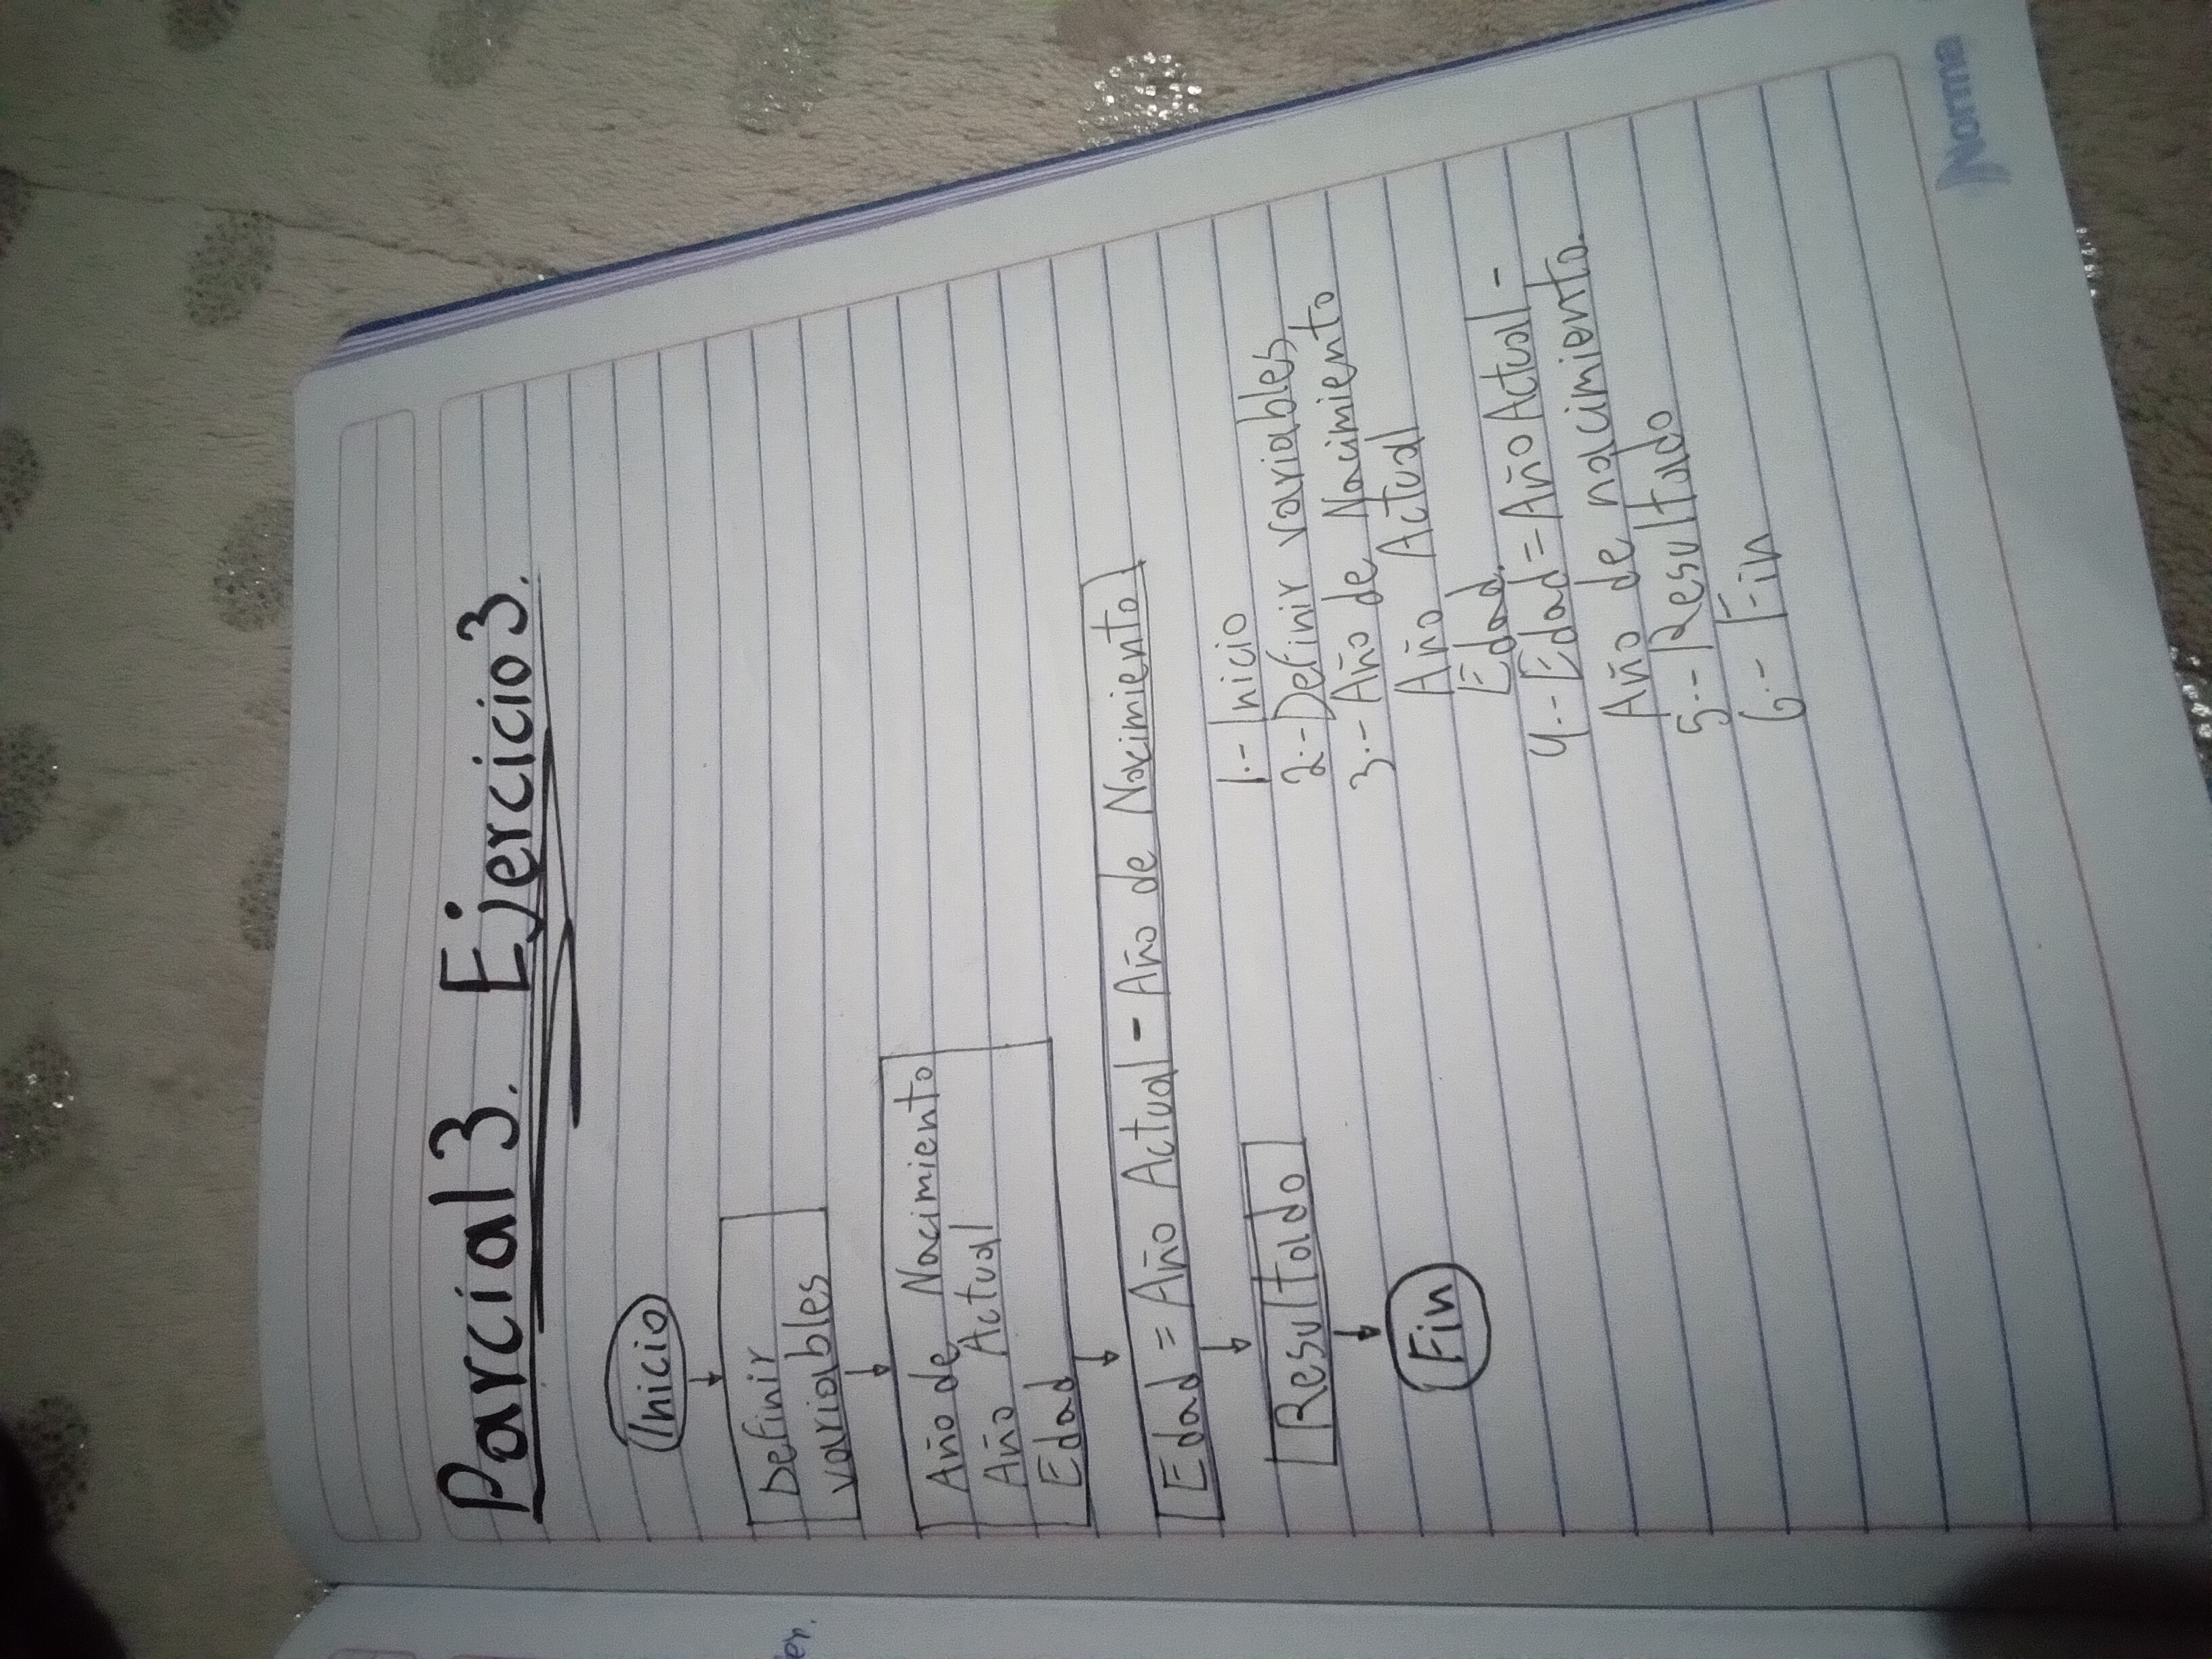 Parcial 3. Ejercicio 3.
Inicio
Definir
variables
Año de Nacimiento
Año Actual
Edad
Edad = Año Actual - Año de Nacimiento
Resultado
Fin
1.- Inicio
2.- Definir variables
3.- Año de Nacimiento
Año Actual
Edad.
4.- Edad = Año Actual -
Año de nacimiento.
5.- Resultado
6.- Fin
Norma